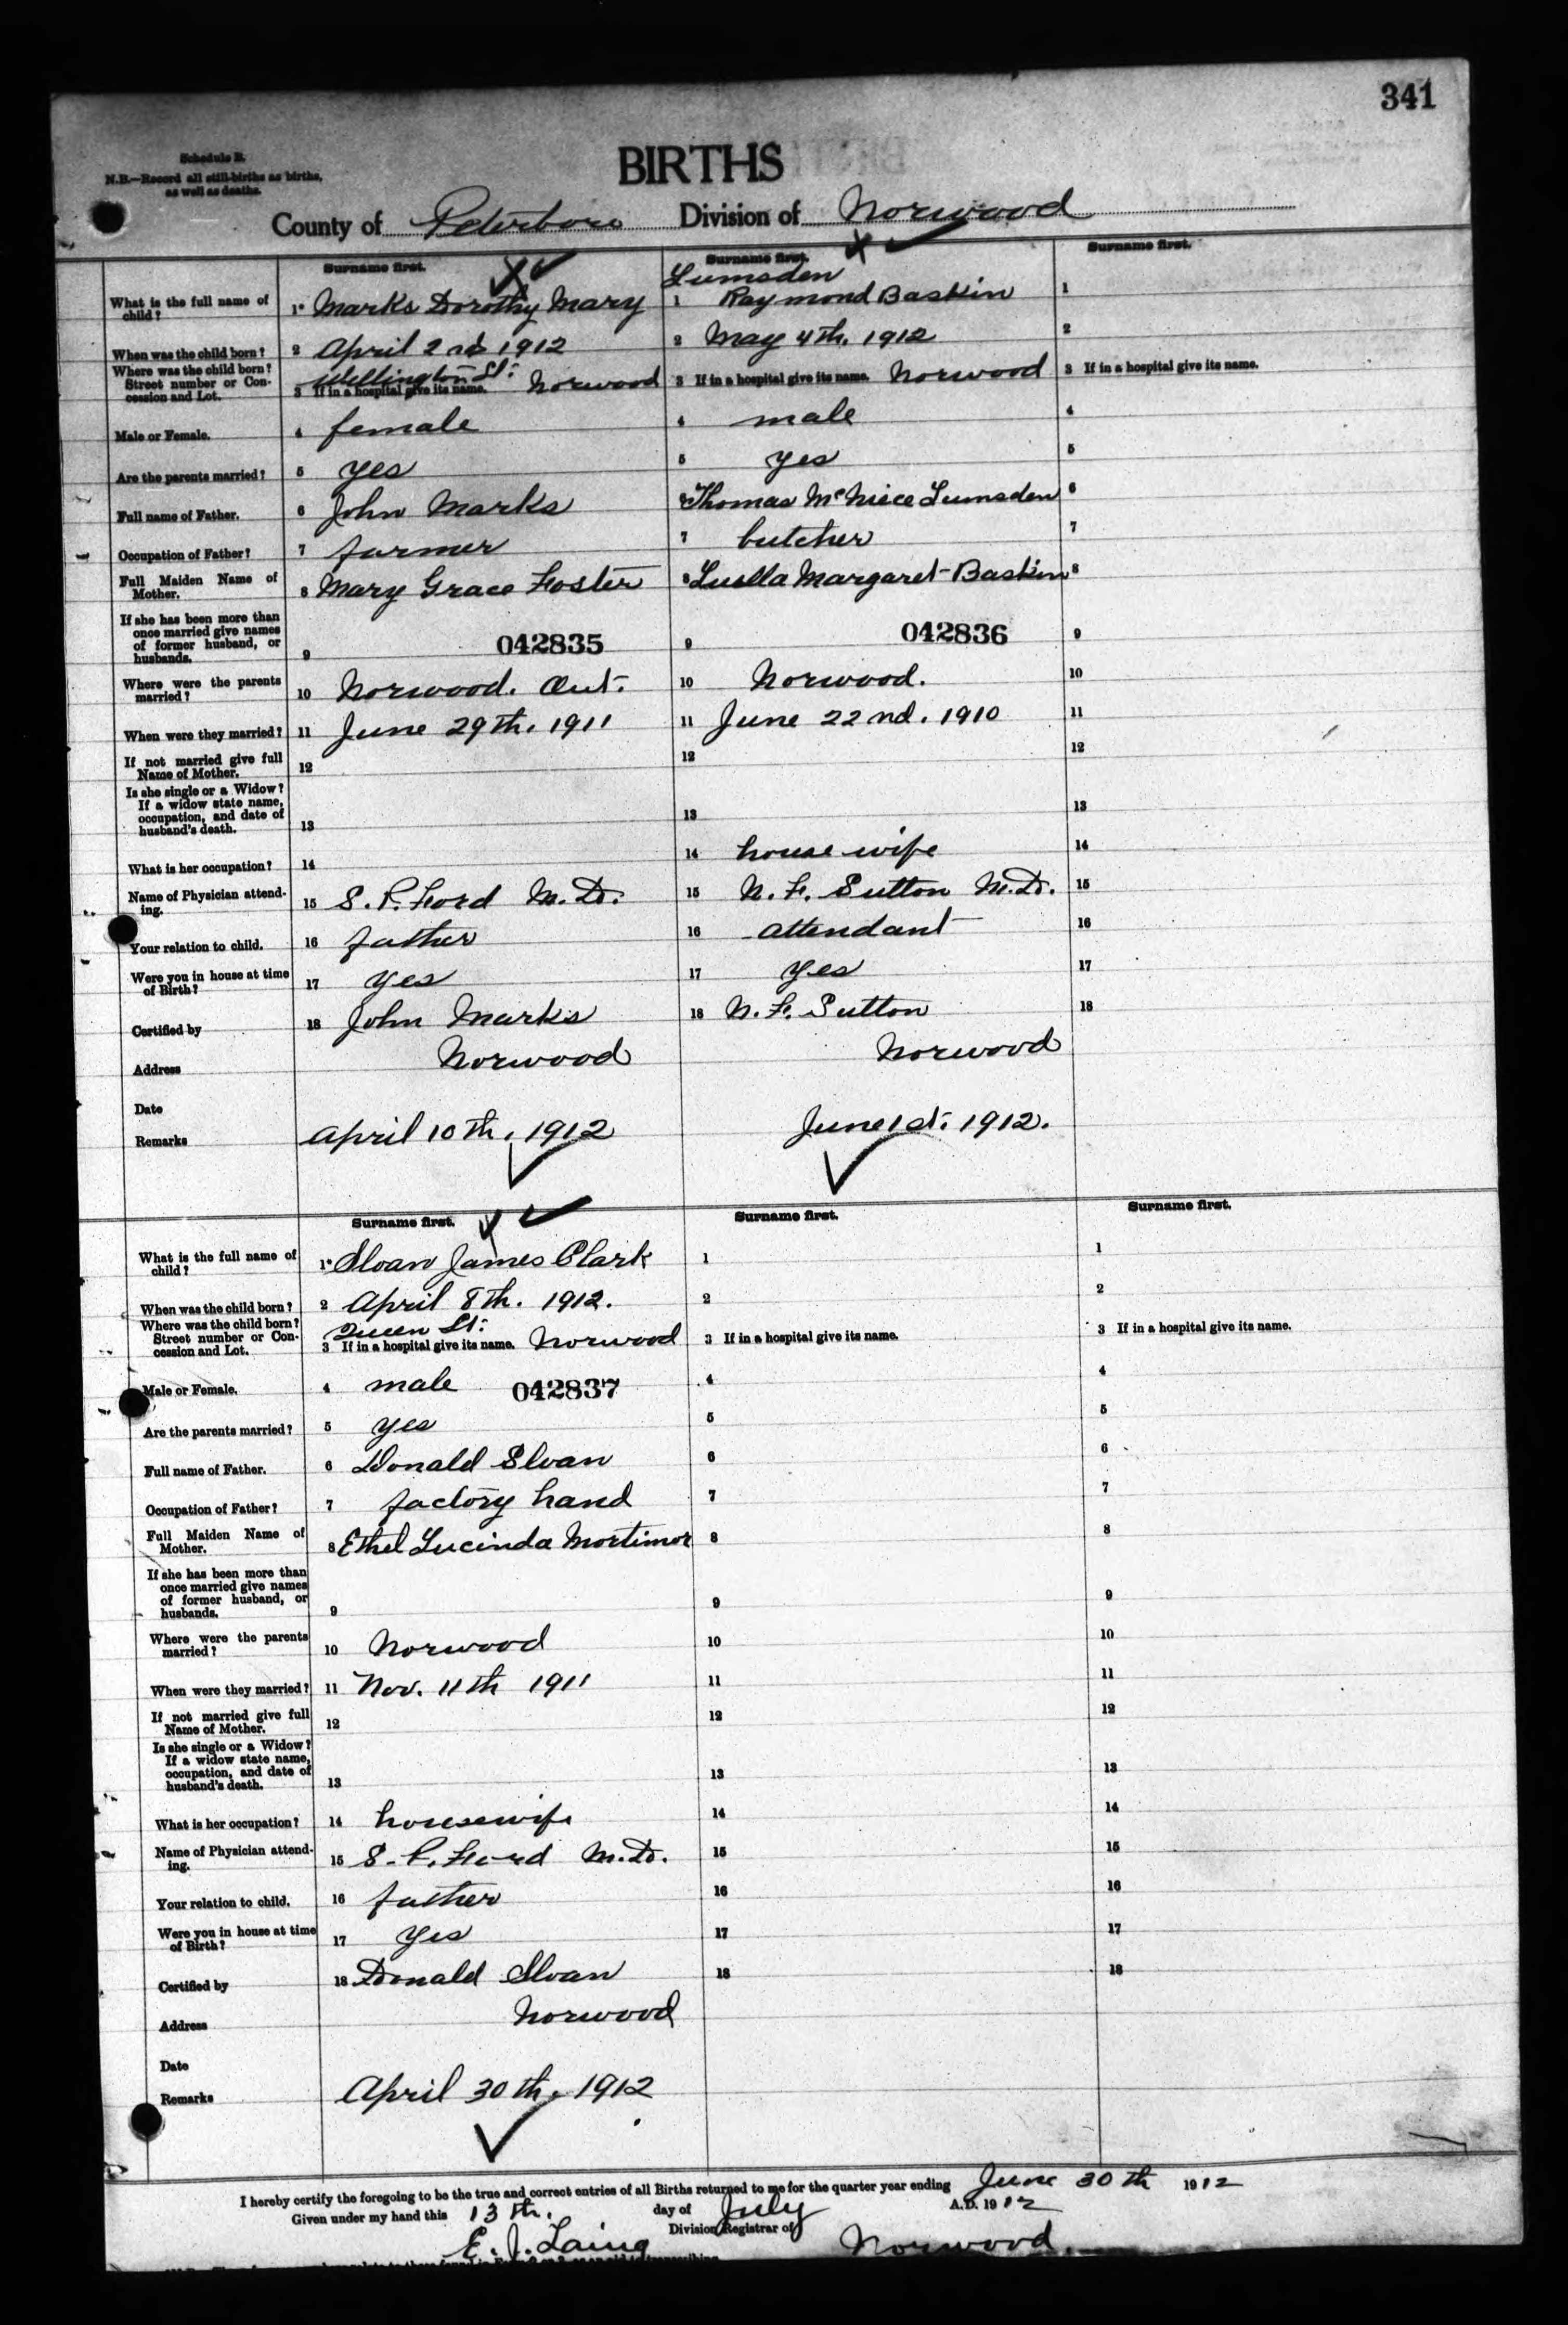 341
Schedule B.
N.B.—Record all still-births as births,
as well as deaths.
BIRTHS
County of Peterboro Division of Norwood
Surname first.
What is the full name of child? 1 Marks Dorothy Mary
When was the child born? 2 April 2nd 1912
Where was the child born? Street number or Concession and Lot. 3 If in a hospital give its name. Wellington St. Norwood
Male or Female. 4 female
Are the parents married? 5 yes
Full name of Father. 6 John Marks
Occupation of Father? 7 farmer
Full Maiden Name of Mother. 8 Mary Grace Foster
If she has been more than once married give names of former husband, or husbands. 9 042835
Where were the parents married? 10 Norwood. Ont.
When were they married? 11 June 29th, 1911
If not married give full Name of Mother. 12
Is she single or a Widow? If a widow state name, occupation, and date of husband's death. 13
What is her occupation? 14
Name of Physician attending. 15 S. P. Ford M.D.
Your relation to child. 16 father
Were you in house at time of Birth? 17 yes
Certified by 18 John Marks
Address Norwood
Date
Remarks April 10th, 1912
Surname first.
Lumsden
1 Raymond Baskin
2 May 4th. 1912
3 If in a hospital give its name. Norwood
4 male
5 yes
6 Thomas McNiece Lumsden
7 butcher
8 Luella Margaret Baskin
9 042836
10 Norwood.
11 June 22nd. 1910
12
13
14 house wife
15 N. F. Sutton M.D.
16 attendant
17 yes
18 N. F. Sutton
Norwood
June 1st. 1912.
Surname first.
1
2
3 If in a hospital give its name.
4
5
6
7
8
9
10
11
12
13
14
15
16
17
18
Surname first.
What is the full name of child? 1 Sloan James Clark
When was the child born? 2 April 8th. 1912.
Where was the child born? Street number or Concession and Lot. 3 If in a hospital give its name. Queen St. Norwood
Male or Female. 4 male 042837
Are the parents married? 5 yes
Full name of Father. 6 Donald Sloan
Occupation of Father? 7 factory hand
Full Maiden Name of Mother. 8 Ethel Lucinda Mortimor
If she has been more than once married give names of former husband, or husbands. 9
Where were the parents married? 10 Norwood
When were they married? 11 Nov. 11th 1911
If not married give full Name of Mother. 12
Is she single or a Widow? If a widow state name, occupation, and date of husband's death. 13
What is her occupation? 14 housewife
Name of Physician attending. 15 S. P. Ford M.D.
Your relation to child. 16 father
Were you in house at time of Birth? 17 yes
Certified by 18 Donald Sloan
Address Norwood
Date
Remarks April 30th, 1912
Surname first.
1
2
3 If in a hospital give its name.
4
5
6
7
8
9
10
11
12
13
14
15
16
17
18
Surname first.
1
2
3 If in a hospital give its name.
4
5
6
7
8
9
10
11
12
13
14
15
16
17
18
I hereby certify the foregoing to be the true and correct entries of all Births returned to me for the quarter year ending June 30th 1912
Given under my hand this 13th. day of July A.D. 1912
E. J. Laing Division Registrar of Norwood.